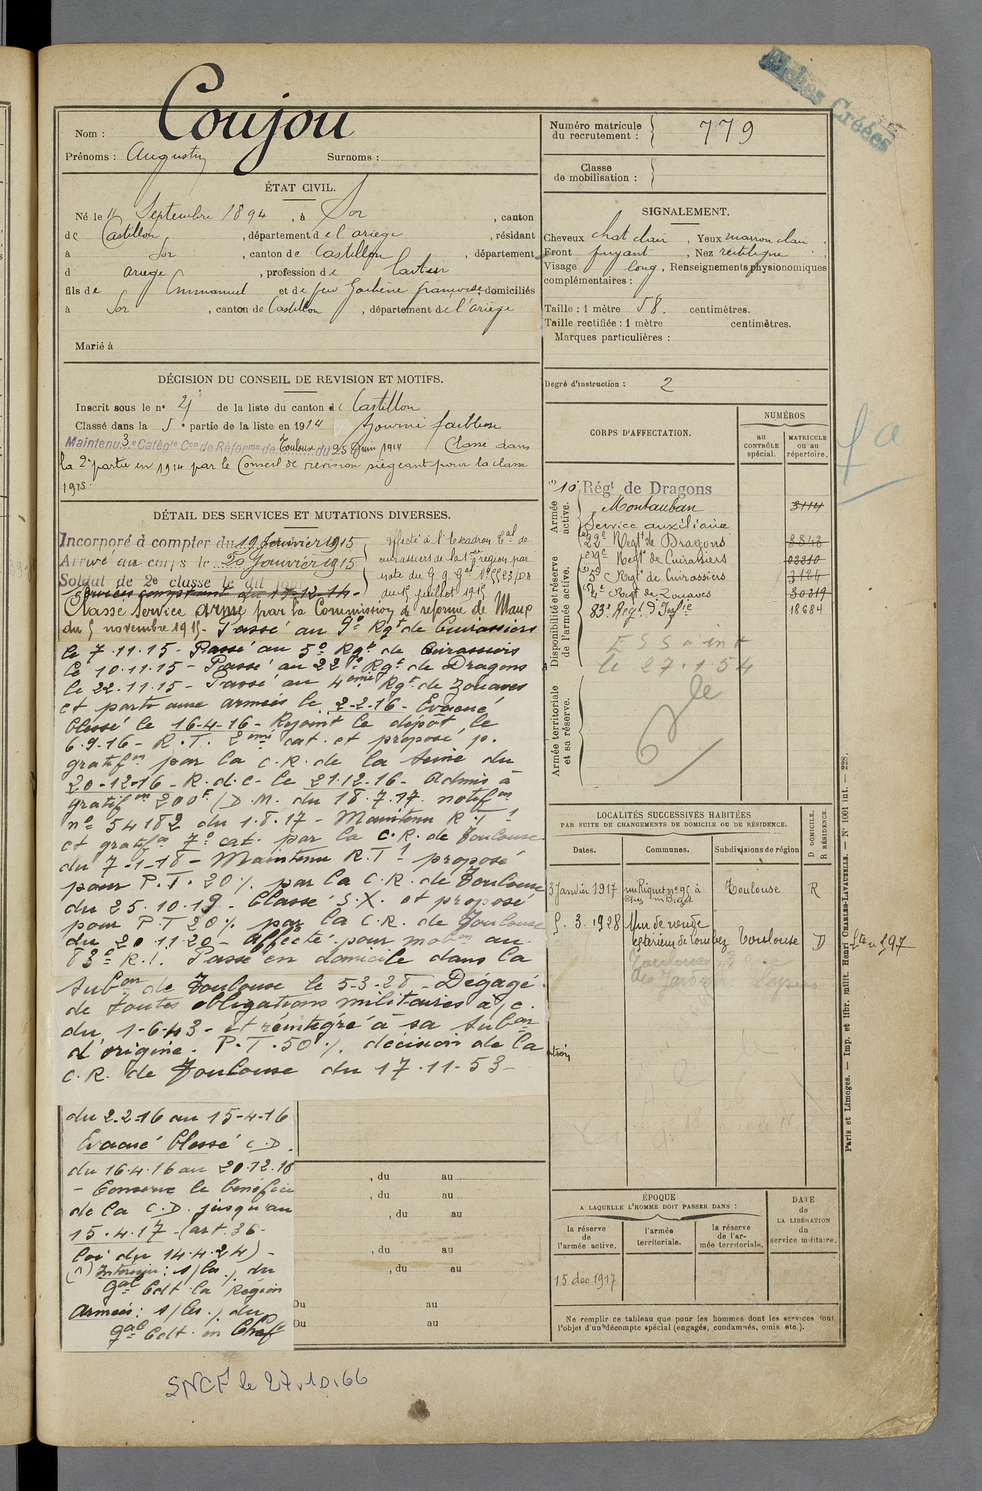 Fiches Créées
Nom : Coujou
Prénoms : Augustin Surnoms :
Numéro matricule du recrutement : 779
Classe de mobilisation :
ÉTAT CIVIL.
Né le 11 Septembre 1894, à Sor, canton
de Castillon, département de l'ariege, résidant
à Sor, canton de Castillon, département
d ariege, profession de facteur
fils de Emmanuel et de feu françoise domiciliés
à Sor, canton de Castillon, département de l'ariège
Marié à
SIGNALEMENT.
Cheveux chat clair, Yeux marron clair.
Front fuyant, Nez rectiligne
Visage long, Renseignements physionomiques
complémentaires :
Taille : 1 mètre 58. centimètres.
Taille rectifiée : 1 mètre centimètres.
Marques particulières :
Degré d'instruction : 2
DÉCISION DU CONSEIL DE REVISION ET MOTIFS.
Inscrit sous le n° 21 de la liste du canton de Castillon
Classé dans la 5e partie de la liste en 1914 Ajourné faiblesse
Maintenu 3e Catégie Con de Réforme de Toulouse du 25 Juin 1914 Classé dans
la 2e partie en 1914 par le Conseil de revision siégeant pour la classe
1915.
DÉTAIL DES SERVICES ET MUTATIONS DIVERSES.
Incorporé à compter du 19 Janvier 1915
Arrivé au corps le 20 Janvier 1915
Soldat de 2e classe le dit jour
services comptent du 17-12-14.
affecté à l'Escadron Cal de
cuirassiers de la 9e région par
note du G. Q. Gal N° 5523/DA
du 15 juillet 1915
Classé Service armé par la Commission de réforme de Maup
du 5 novembre 1915. Passé au 9e Rgt de Cuirassiers
le 7.11.15 - Passé au 5e Rgt de Cuirassiers
le 10.11.15 - Passé au 22e Rgt de Dragons
le 22.11.15 - Passé au 4ème Rgt de Zouaves
et parti aux armées le 2-2-16 - Evacué
blessé le 16-4-16 - Rejoint le dépôt le
6.9.16 - R.T. 2ème cat. et proposé p.
gratifon par la C.R. de la Seine du
20-12-16 - R.d.c. le 21.12.16 - Admis à
gratifon 200f (D.M. du 18.7.17. notifon
n° 54182 du 1.8.17 - Maintenu R.T. 1
et gratifon 7e cat. par la C.R. de Toulouse
du 7-1-18 - Maintenu R.T 1 proposé
pour P.T. 20% par la C.R. de Toulouse
du 25.10.19 - Classé S.X. et proposé
pour P.T 20% par la C.R. de Toulouse
du 20.11.20 - Affecté pour mobon au
83e R.I. Passé en domicile dans la
subon de Toulouse le 5-3-28 - Dégagé
de toutes obligations militaires à/c.
du 1-6-43 - et réintégré à sa subon
d'origine. P.T. 50% décision de la
C.R. de Toulouse du 17.11.53 -
du 2-2-16 au 15-4-16
Evacué blessé C.D.
du 16.4.16 au 20.12.16
- Conserve le bénéfice
de la C.D. jusqu'au
15.4.17 - (art. 36
loi du 14.4.24) -
(1) Intérieur : s/les / du
Gal Cdt la Région
Armées : s/les / du
Gal Cdt en Chef
, du au
, du au
, du au
, du au
, du au
Du au
Du au
CORPS D'AFFECTATION.
NUMÉROS
au CONTRÔLE spécial.
MATRICULE ou au répertoire.
Armée active.
Disponibilité et réserve de l'armée active.
Armée territoriale et sa réserve.
10 Régt de Dragons
Montauban 3114
Service auxiliaire
22e Regt de Dragons 2843
9e Regt de Cuirassiers 03310
5e Regt de Cuirassiers 3124
4e Regt de Zouaves 30219
83e Régt d'Infie 18684
le 27.1.54
fa
LOCALITÉS SUCCESSIVES HABITÉES
PAR SUITE DE CHANGEMENTS DE DOMICILE OU DE RÉSIDENCE.
Dates. Communes. Subdivisions de région D DOMICILE, R RÉSIDENCE
3 Janvier 1917 rue Riquet n° 95 à Toulouse R
5. 3. 1928 Toulouse D
ÉPOQUE
A LAQUELLE L'HOMME DOIT PASSER DANS :
la réserve de l'armée active.
l'armée territoriale.
la réserve de l'armée territoriale.
DATE de LA LIBÉRATION du service militaire.
15 dec 1917
Ne remplir ce tableau que pour les hommes dont les services font
l'objet d'un décompte spécial (engagés, condamnés, omis, etc.).
Paris et Limoges. — Imp. et libr. milit. Henri CHARLES-LAVAUZELLE. — N° 1661 int. — 228.
SNCF le 27.10.66